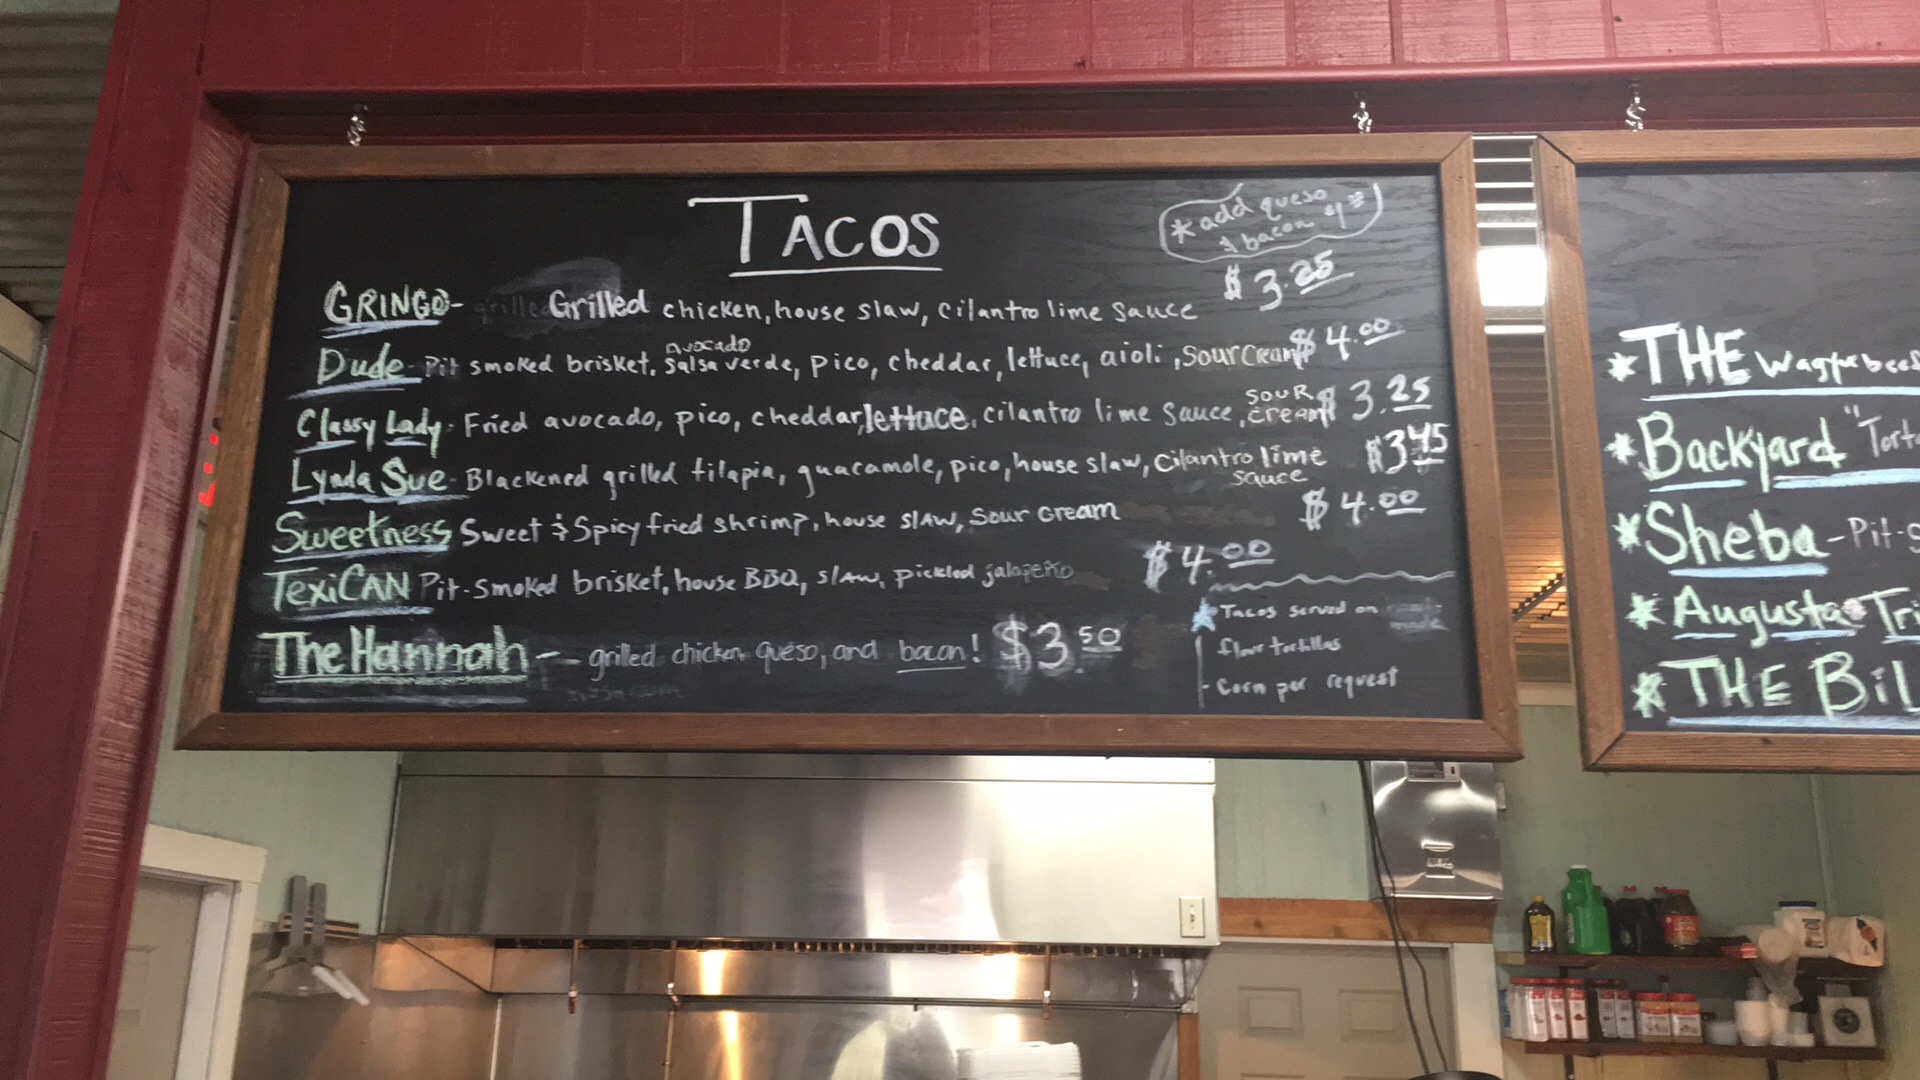 TACOS
*add queso
& bacon $1
GRINGO- Grilled chicken, house slaw, cilantro lime sauce $3.25
avocado
Dude- Pit smoked brisket, salsa verde, pico, cheddar, lettuce, aioli, sour cream $4.00
Classy Lady- Fried avocado, pico, cheddar, lettuce, cilantro lime sauce, sour cream $3.25
Lynda Sue- Blackened grilled tilapia, guacamole, pico, house slaw, cilantro lime sauce $3.45
Sweetness Sweet & Spicy fried shrimp, house slaw, sour cream $4.00
TexiCAN Pit-smoked brisket, house BBQ, slaw, pickled jalapeño $4.00
The Hannah - grilled chicken queso, and bacon! $3.50
*Tacos served on
flour tortillas
- Corn per request
*THE
*Backyard
*Sheba-Pit-S
*Augusta
*THE BiL